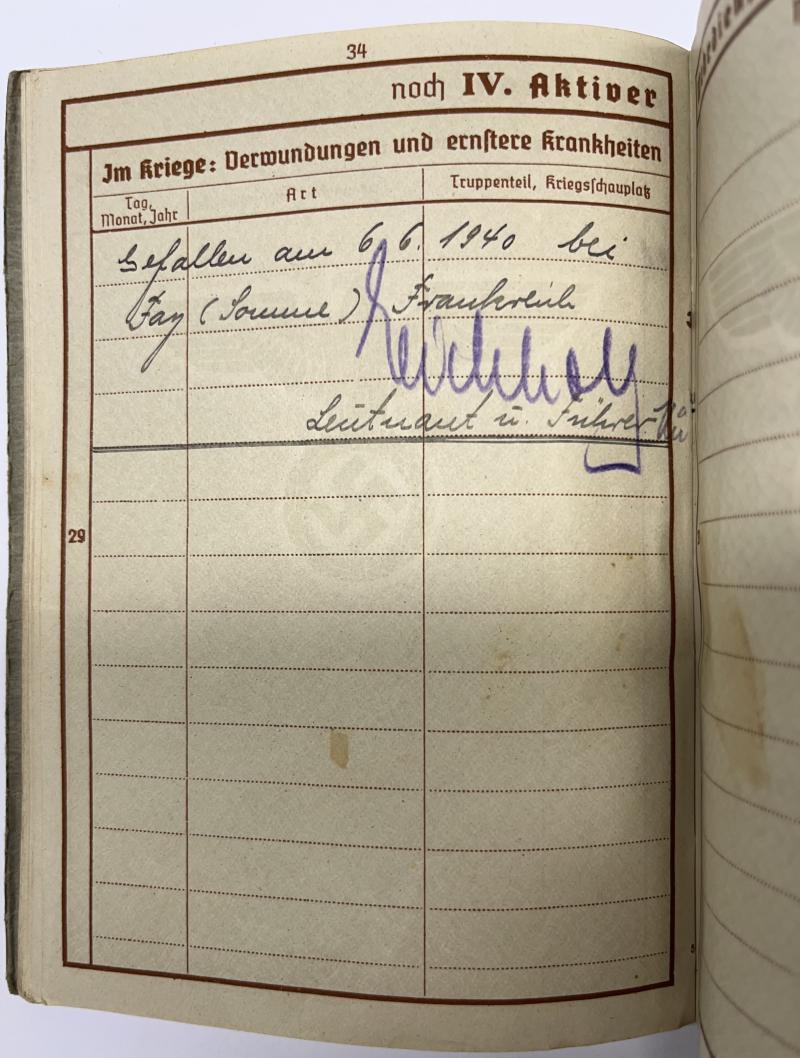 34
noch IV. Aktiver
Im Kriege: Verwundungen und ernstere Krankheiten
Tag, Monat, Jahr
Art
Truppenteil, Kriegsschauplatz
Gefallen am 6. 6. 1940 bei
Fay (Somme) Frankreich
Leutnant u. Führer
29